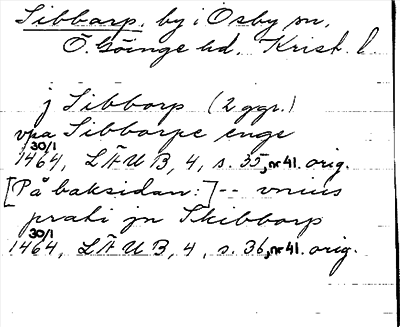 Sibbarp, by i Osby sn,
Ö. Göinge hd. Krist. l.
j Sibborp (2 ggr.)
vpa Sibborpe enge
30/1
1464, LÄUB, 4, s. 35, nr 41. orig.
[På baksidan:] -- vnius
prati jn Skibborp
30/1
1464, LÄUB, 4, s. 36, nr 41. orig.